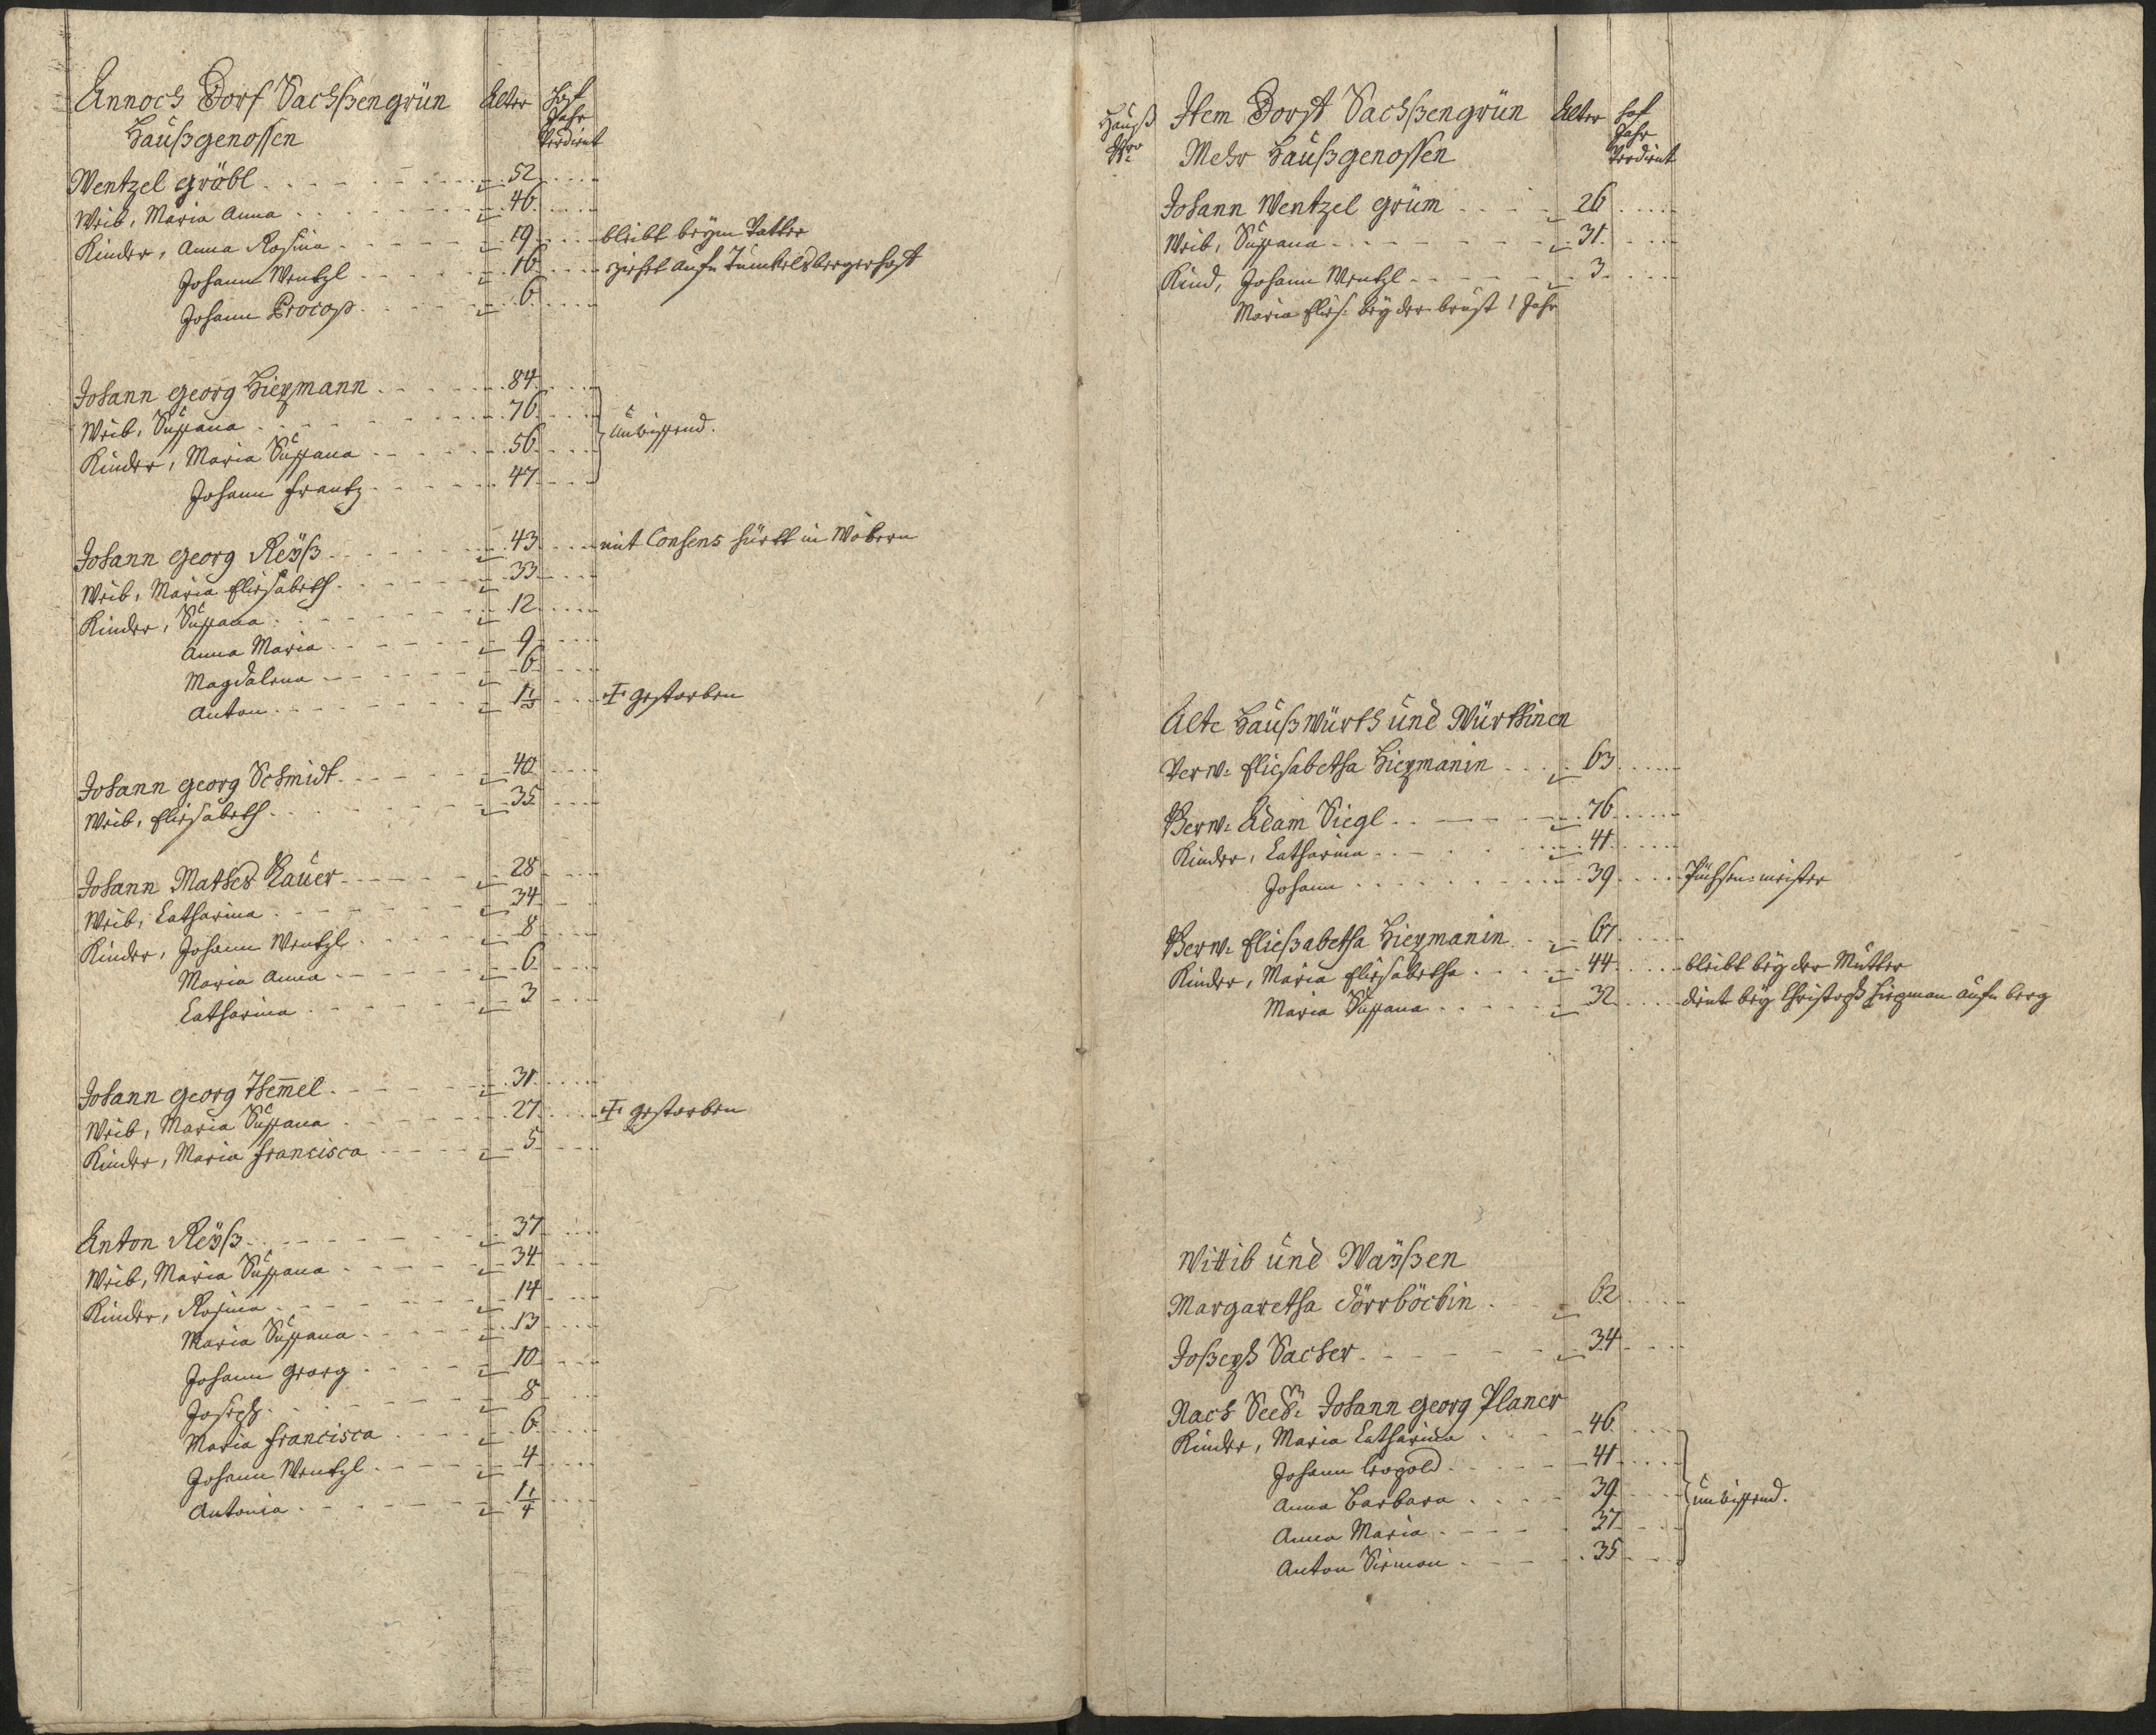 Annoch Dorf Sachßengrün Alter Hof Jahr Verdient
Haußgenossen
Wentzel gröbl 52
Weib, Maria Anna 46
Kinder, Anna Rosina 19 bleibt beym Vatter
Johann Wentzl 16 ziehet aufn
Johann Procop 6
Johann georg Hiezmann 84
Weib, Sußana 76
Kinder, Maria Sußana 56 unwissend.
Johann Frantz 47
Johann georg Reÿß 43 mit Consens in
Weib, Maria Eliesabeth 33
Kinder, Sußana 12
Anna Maria 9
Magdalena 6
Anton 1 1/3 gestorben
Johann georg Schmidt 40
Weib, Eliesabeth 35
Johann Mathes 28
Weib, Catharina 34
Kinder, Johann Wentzl 8
Maria Anna 6
Catharina 3
Johann georg 31
Weib, Maria Sußana 27 gestorben
Kinder, Maria Francisca 5
Anton Reÿß 37
Weib, Maria Sußana 34
Kinder, Rosina 14
Maria Sußana 13
Johann georg 10
Joseph 8
Maria Francisca 6
Johann Wentzl 4
Antonia 1 1/4
Hauß Nro Item Dorff Sachßengrün Alter Hof Jahr Verdient
Mehr Haußgenossen
Johann Wentzel grüm 26
Weib, Sußana 31
Kind, Johann Wentzl 3
Maria Elies: bey der brust 1 Jahr
Alte Haußwürth und Würthinen
Verw: Eliesabetha Hiezmanin 63
Verw: Adam Siegl 76
Kinder, Catharina 41
Johann 39
Verw: Eließabetha Hiezmanin 67
Kinder, Maria Eliesabetha 44 bleibt bey der Mutter
Maria Sußana 32 dient bey Christoph Hiezman aufn berg
Wittib und Waÿßen
Margaretha Dörrböckin 62
Joßeph Sacher 34
Nach Seel: Johann georg Planer
Kinder, Maria Catharina 46
Johann Leopold 41
Anna Barbara 39 unwissend.
Anna Maria 37
Anton Siemon 35